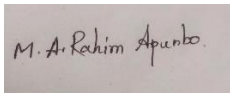 M. A. Rahim Apunbo.